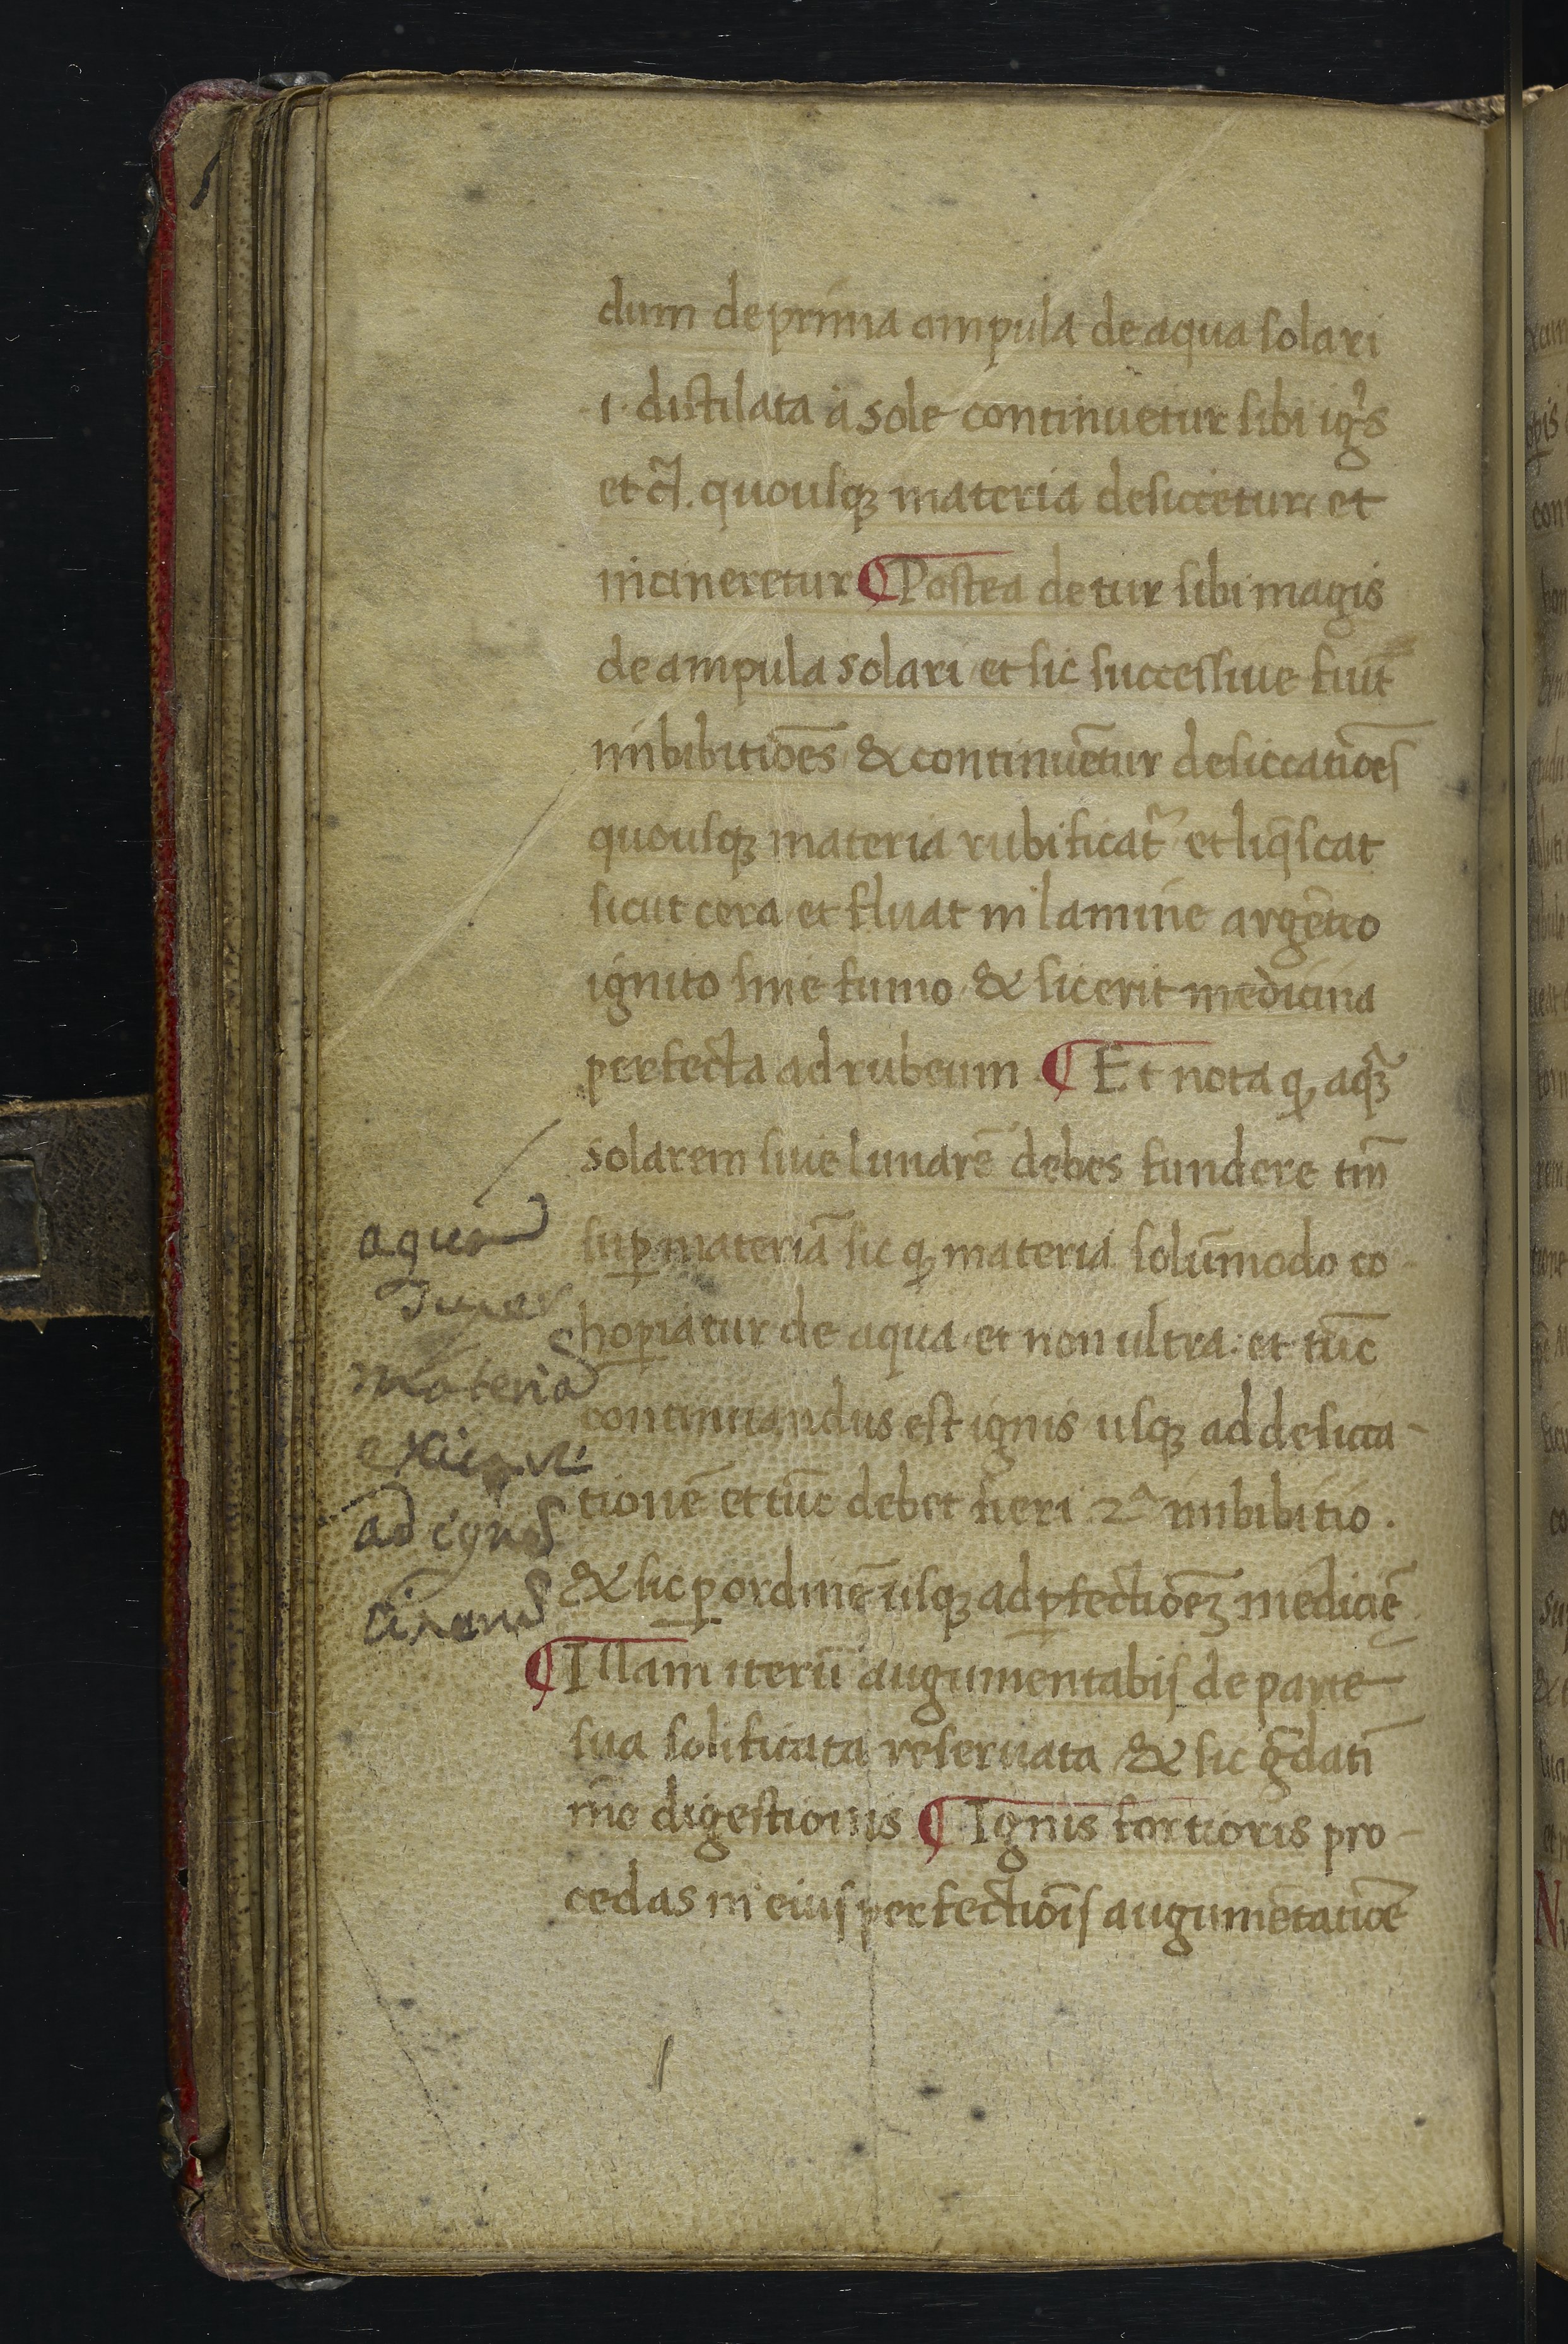 dum de prima ampula de aqua solari
·i· distilata à sole continuetur sibi ig͛s
et c̃l. quousqꝫ materia desiccetur et
incineretur ¶ Postea detur sibi magis
de ampula solari et sic successiue fiūt
imbibitiões & continuētur desiccatiões
quousqꝫ materia rubificat᷑ et liq̃scat
sicut cera et fluat in lamine argēteo
ignito sine fumo & sic erit medicina
perfecta ad rubeum ¶ Et nota ꝙ aquā
solarem siue lunarē debes fundere tm̃
suꝑ materiā sic ꝙ materia solūmodo co-
hoꝑiatur de aqua et non ultra: et tūc
continuandus est ignis usqꝫ ad desicca-
tionē et tūc debet fieri 2ᵃ imbibitio.
& sic ꝑ ordinē usqꝫ ad ꝑfectioēꝫ mediciē
¶ Illam iterū augumentabis de parte
sua solificata reseruata & sic g̃datī
mõ digestionis ¶ Ignis fortioris pro-
cedas in eius perfectiõis augumētatiõe
aqua
super
materia
ad ignē